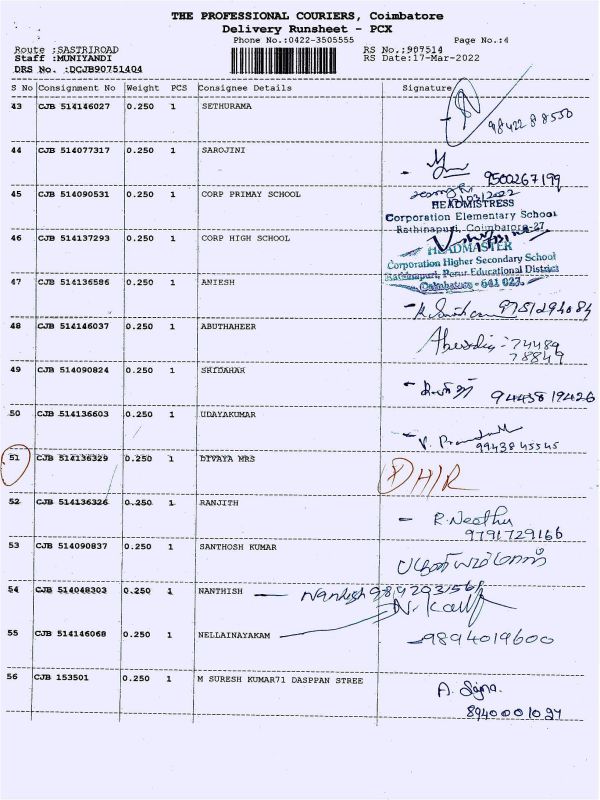 THE PROFESSIONAL COURIERS, Coimbatore
Delivery Runsheet - PCX
Phone No.:0422-3505555 Page No.:4
Route :SASTRIROAD RS No.:907514
Staff :MUNIYANDI RS Date:17-Mar-2022
DRS No. :DCJB90751404
S No Consignment No Weight PCS Consignee Details Signature
43 CJB 514146027 0.250 1 SETHURAMA
9842288550
44 CJB 514077317 0.250 1 SAROJINI
9500267199
45 CJB 514090531 0.250 1 CORP PRIMAY SCHOOL
HEADMISTRESS
Corporation Elementary School
Rathinapuri, Coimbatore-27
46 CJB 514137293 0.250 1 CORP HIGH SCHOOL
HEADMASTER
Corporation Higher Secondary School
Rathinapuri, Perur Educational District
Coimbatore - 641 027.
47 CJB 514136586 0.250 1 ANIESH
9751294084
48 CJB 514146037 0.250 1 ABUTHAHEER
74489
78849
49 CJB 514090824 0.250 1 SRIDAHAR
9443819426
50 CJB 514136603 0.250 1 UDAYAKUMAR
9943845545
51 CJB 514136329 0.250 1 DIVAYA MRS
52 CJB 514136326 0.250 1 RANJITH
R. Neethu
9791729166
53 CJB 514090837 0.250 1 SANTHOSH KUMAR
54 CJB 514048303 0.250 1 NANTHISH Nandish
55 CJB 514146068 0.250 1 NELLAINAYAKAM
9894019600
56 CJB 153501 0.250 1 M SURESH KUMAR71 DASPPAN STREE
89400001027